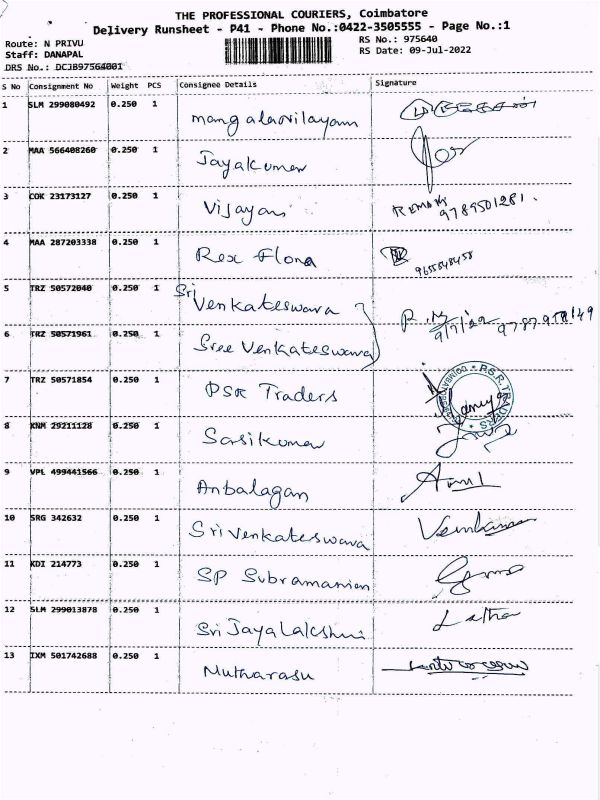 THE PROFESSIONAL COURIERS, Coimbatore
Delivery Runsheet - P41 - Phone No.:0422-3505555 - Page No.:1
Route: N PRIVU RS No.: 975640
Staff: DANAPAL RS Date: 09-Jul-2022
DRS No.: DCJB97564001
S No Consignment No Weight PCS Consignee Details Signature
1 SLM 299080492 0.250 1 mangalavilayam
2 MAA 566408260 0.250 1 Jayakumar
3 COK 23173127 0.250 1 Vijayan 9789501281.
4 MAA 287203338 0.250 1 Rex Flona
5 TRZ 50572040 0.250 1 Sri Venkateswara
6 TRZ 50571961 0.250 1 Sree Venkateswara 9/7/22
7 TRZ 50571854 0.250 1 PSR Traders P.S.R. TRADERS COIMBATORE
8 KNM 29211128 0.250 1 Sasikumar
9 VPL 499441566 0.250 1 Anbalagan
10 SRG 342632 0.250 1 Sri Venkateswara
11 KDI 214773 0.250 1 SP Subramanian
12 SLM 299013878 0.250 1 Sri Jayalakshmi Latha
13 IXM 501742688 0.250 1 Mutharasu